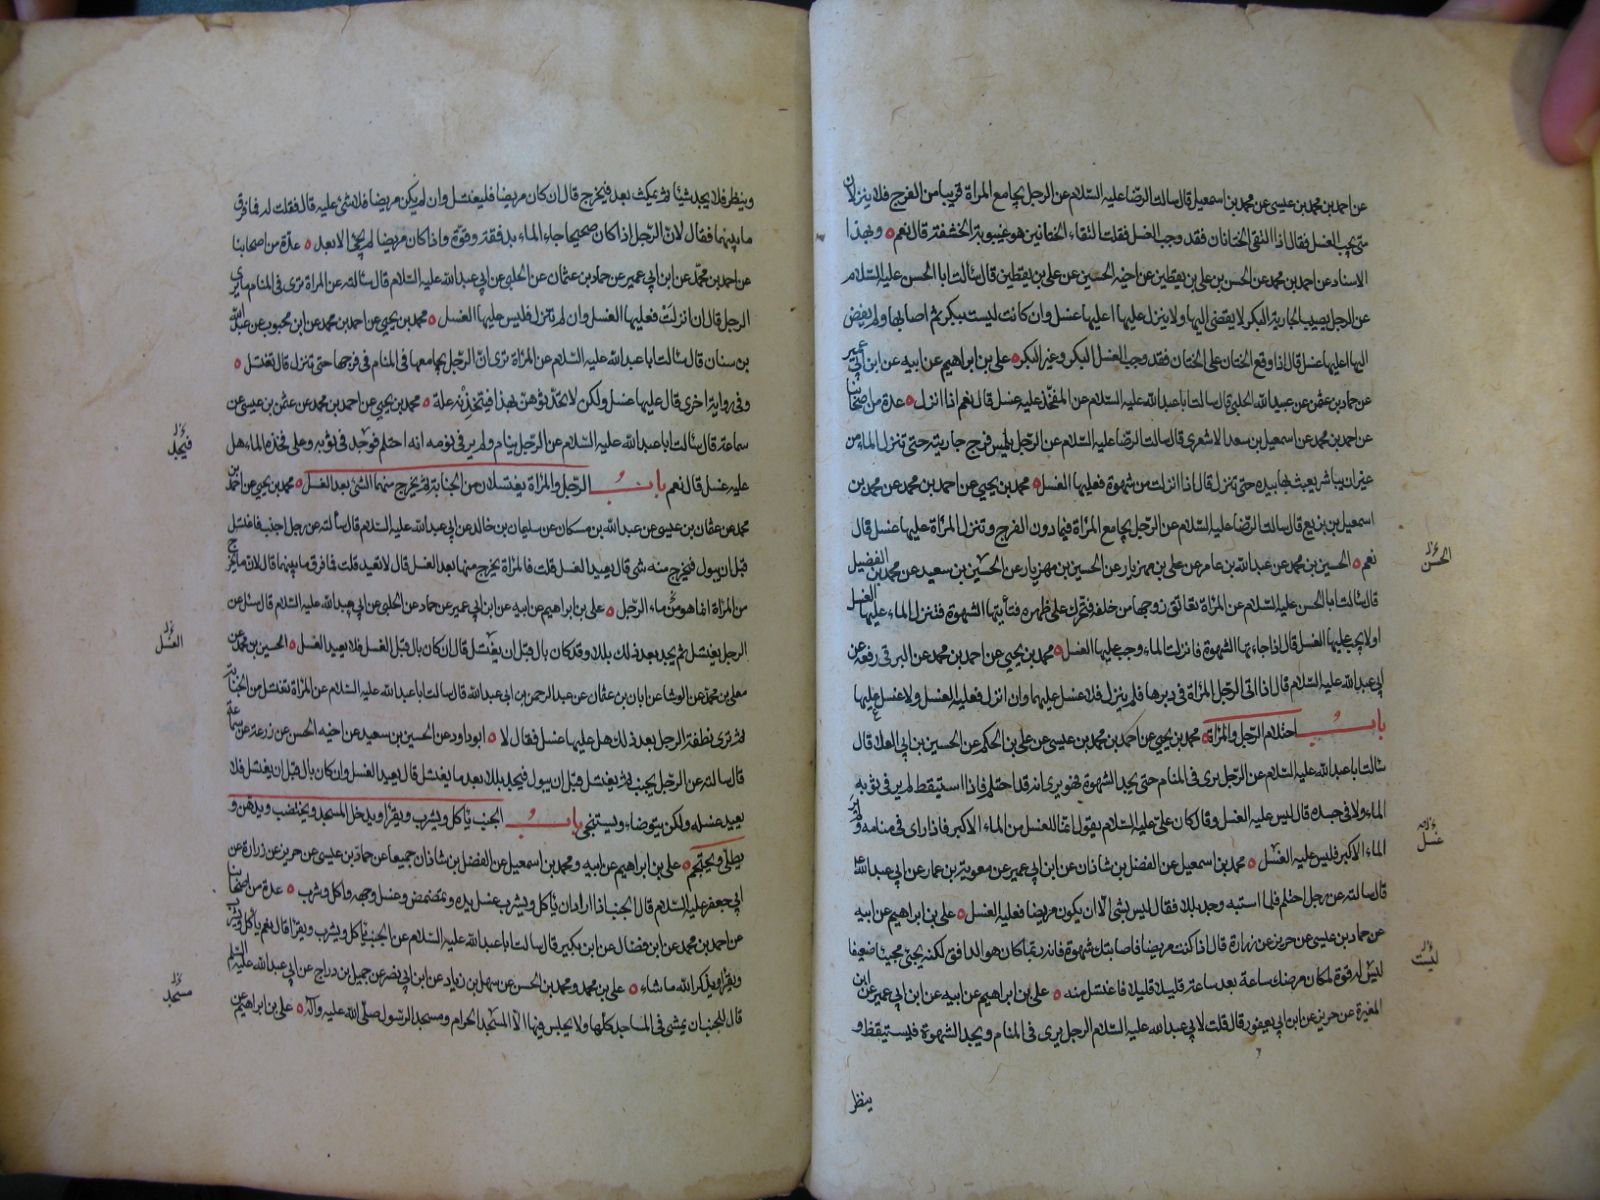 عن احمد بن محمد بن عيسى عن محمد بن اسمعيل قال سالت الرضا عليه السلام عن الرجل يجامع المراة قريبا من الفرج فلا ينزلان
متى يجب الغسل فقال اذا التقى الختانان فقد وجب الغسل فقلت التقاء الختانين هو غيبوبة الحشفة قال نعم وبهذا
الاسناد عن احمد بن محمد عن الحسن بن علي بن يقطين عن اخيه الحسين عن علي بن يقطين قال سالت ابا الحسن عليه السلام
عن الرجل يصيب الجارية البكر لا يفضى اليها ولا ينزل عليها اعليها غسل وان كانت ليست ببكر ثم اصابها ولم يفض
اليها اعليها غسل قال اذا وقع الختان على الختان فقد وجب الغسل البكر وغير البكر علي بن ابراهيم عن ابيه عن ابن ابي عمير
عن حماد بن عثمن عن عبيد الله الحلبي قال سالت ابا عبد الله عليه السلام عن المفخذ عليه غسل قال نعم اذا انزل عدة من اصحابنا
عن احمد بن محمد عن اسمعيل بن سعد الاشعري قال سالت الرضا عليه السلام عن الرجل يلمس فرج جاريته حتى تنزل الماء من
غير ان يباشر يعبث بها بيده حتى تنزل قال اذا انزلت من شهوة فعليها الغسل محمد بن يحيى عن احمد بن محمد عن محمد بن
اسمعيل بن بزيع قال سالت الرضا عليه السلام عن الرجل يجامع المراة فيما دون الفرج وتنزل المراة عليها غسل قال
نعم الحسين بن محمد عن عبد الله بن عامر عن علي بن مهزيار عن الحسين بن سعيد عن محمد بن الفضيل
قال سالت ابا الحسن عليه السلام عن المراة تعانق زوجها من خلفه فتحرك على ظهره فتأتيها الشهوة فتنزل الماء عليها الغسل
او لا يجب عليها الغسل قال اذا جاءتها الشهوة فانزلت الماء وجب عليها الغسل محمد بن يحيى عن احمد بن محمد عن البرقي رفعه عن
ابي عبد الله عليه السلام قال اذا اتى الرجل المراة في دبرها فلم ينزل فلا غسل عليهما وان انزل فعليه الغسل ولا غسل عليها
باب احتلام الرجل والمراة محمد بن يحيى عن احمد بن محمد بن عيسى عن علي بن الحكم عن الحسين بن ابي العلا قال
سالت ابا عبد الله عليه السلام عن الرجل يرى في المنام حتى يجد الشهوة فهو يرى انه قد احتلم فاذا استيقظ لم ير في ثوبه
الماء ولا في جسده قال ليس عليه الغسل وقال كان علي عليه السلام يقول انما الغسل من الماء الاكبر فاذا راى في منامه ولم ير
الماء الاكبر فليس عليه الغسل محمد بن اسمعيل عن الفضل بن شاذان عن ابن ابي عمير عن معوية بن عمار عن ابي عبد الله
قال سالته عن رجل احتلم فلما انتبه وجد بللا فقال ليس بشى الا ان يكون مريضا فعليه الغسل علي بن ابراهيم عن ابيه
عن حماد بن عيسى عن حريز عن زرارة قال اذا كنت مريضا فاصابتك شهوة فانه ربما كان هو الدافق لكنه يجيئ مجيئا ضعيفا
ليس له قوة لمكان مرضك ساعة بعد ساعة قليلا قليلا فاغتسل منه علي بن ابراهيم عن ابيه عن ابن ابي عمير عن ابن
المغيرة عن حريز عن ابن ابي يعفور قال قلت لابي عبد الله عليه السلام الرجل يرى في المنام ويجد الشهوة فيستيقظ و
ينظر
الحسن
غسل
ليست
وينظر فلا يجد شيئا ثم يمكث بعد فيخرج قال ان كان مريضا فليغتسل وان لم يكن مريضا فلا شئ عليه قال فقلت له فما فرق
ما بينهما فقال لان الرجل اذا كان صحيحا جاء الماء بدفقة وقوة واذا كان مريضا لم يجئ الا بعد عدة من اصحابنا
عن احمد بن محمد عن ابن ابي عمير عن حماد بن عثمان عن الحلبي عن ابي عبد الله عليه السلام قال سالته عن المراة ترى في المنام ما يرى
الرجل قال ان انزلت فعليها الغسل وان لم تنزل فليس عليها الغسل محمد بن يحيى عن احمد بن محمد عن ابن محبوب عن عبد الله
بن سنان قال سالت ابا عبد الله عليه السلام عن المراة ترى ان الرجل يجامعها في المنام في فرجها حتى تنزل قال تغتسل
وفي رواية اخرى قال عليها غسل ولكن لا تحدثوهن بهذا فيتخذنه علة محمد بن يحيى عن احمد بن محمد عن عثمن بن عيسى عن
سماعة قال سالت ابا عبد الله عليه السلام عن الرجل ينام ولم ير في نومه انه احتلم فوجد في ثوبه وعلى فخذه الماء هل
عليه غسل قال نعم باب الرجل والمراة يغتسلان من الجنابة ثم يخرج منهما الشئ بعد الغسل محمد بن يحيى عن احمد بن
محمد عن عثمان بن عيسى عن عبد الله بن مسكان عن سليمان بن خالد عن ابي عبد الله عليه السلام قال سألته عن رجل اجنب فاغتسل
قبل ان يبول فيخرج منه شى قال يعيد الغسل قلت فالمراة يخرج منها بعد الغسل قال لا تعيد قلت فما فرق ما بينهما قال لان ما يخرج
من المراة انما هو من ماء الرجل علي بن ابراهيم عن ابيه عن ابن ابي عمير عن حماد عن الحلبي عن ابي عبد الله عليه السلام قال سئل عن
الرجل يغتسل ثم يجد بعد ذلك بللا وقد كان بال قبل ان يغتسل قال ان كان بال قبل الغسل فلا يعيد الغسل الحسين بن محمد عن
معلى بن محمد عن الوشا عن ابان بن عثمان عن عبد الرحمن بن ابي عبد الله قال سالت ابا عبد الله عليه السلام عن المراة تغتسل من الجنابة
ثم ترى نطفة الرجل بعد ذلك هل عليها غسل فقال لا ابو داود عن الحسين بن سعيد عن اخيه الحسن عن زرعة عن سماعة
قال سالته عن الرجل يجنب ثم يغتسل قبل ان يبول فيجد بللا بعد ما يغتسل قال يعيد الغسل وان كان بال قبل ان يغتسل فلا
يعيد غسله ولكن يتوضاء ويستنجى باب الجنب ياكل ويشرب ويقرا ويدخل المسجد ويختضب ويدهن و
يطلى ويحتجم علي بن ابراهيم عن ابيه ومحمد بن اسمعيل عن الفضل بن شاذان جميعا عن حماد بن عيسى عن حريز عن زرارة عن
ابي جعفر عليه السلام قال الجنب اذا اراد ان ياكل ويشرب غسل يده وتمضمض وغسل وجهه واكل وشرب عدة من اصحابنا
عن احمد بن محمد عن ابن فضال عن ابن بكير قال سالت ابا عبد الله عليه السلام عن الجنب ياكل ويشرب ويقرا قال نعم ياكل ويشرب
ويقرا ويذكر الله ما شاء علي بن محمد ومحمد بن الحسن عن سهل بن زياد عن ابن ابي نصر عن جميل بن دراج عن ابي عبد الله عليه السلام
قال للجنب ان يمشى في المساجد كلها ولا يجلس فيها الا المسجد الحرام ومسجد الرسول صلى الله عليه وآله علي بن ابراهيم عن
فيجد
الغسل
مسجد